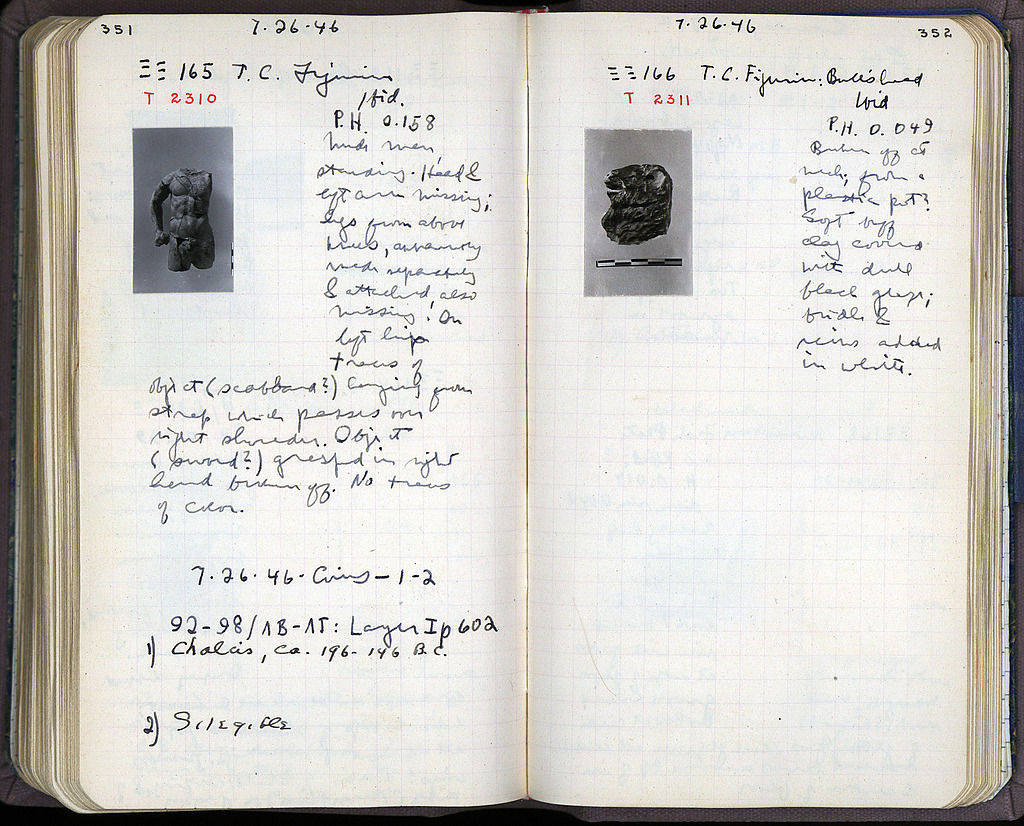 351
7·26·46
ΞΞ 165 T.C. Figurine
T 2310
Ibid.
P.H. 0.158
Nude man
standing. Head &
left arm missing;
legs from above
knees, apparently
made separately
& attached, also
missing. On
left hip
traces of
object (scabbard?) hanging from
strap which passes over
right shoulder. Object
(sword?) grasped in right
hand broken off. No traces
of color.
7·26·46·Coins–1-2
92-98/ΛΒ-ΛΓ: Layer I p 602
1) Chalcis, ca. 196-146 B.C.
2) Illegible
7·26·46
352
ΞΞ 166 T.C. Figurine: Bull's head
T 2311
Ibid
P.H. 0.049
Broken off at
neck; from a
plastic pot?
Soft buff
clay covered
with dull
black glaze;
bridle &
reins added
in white.